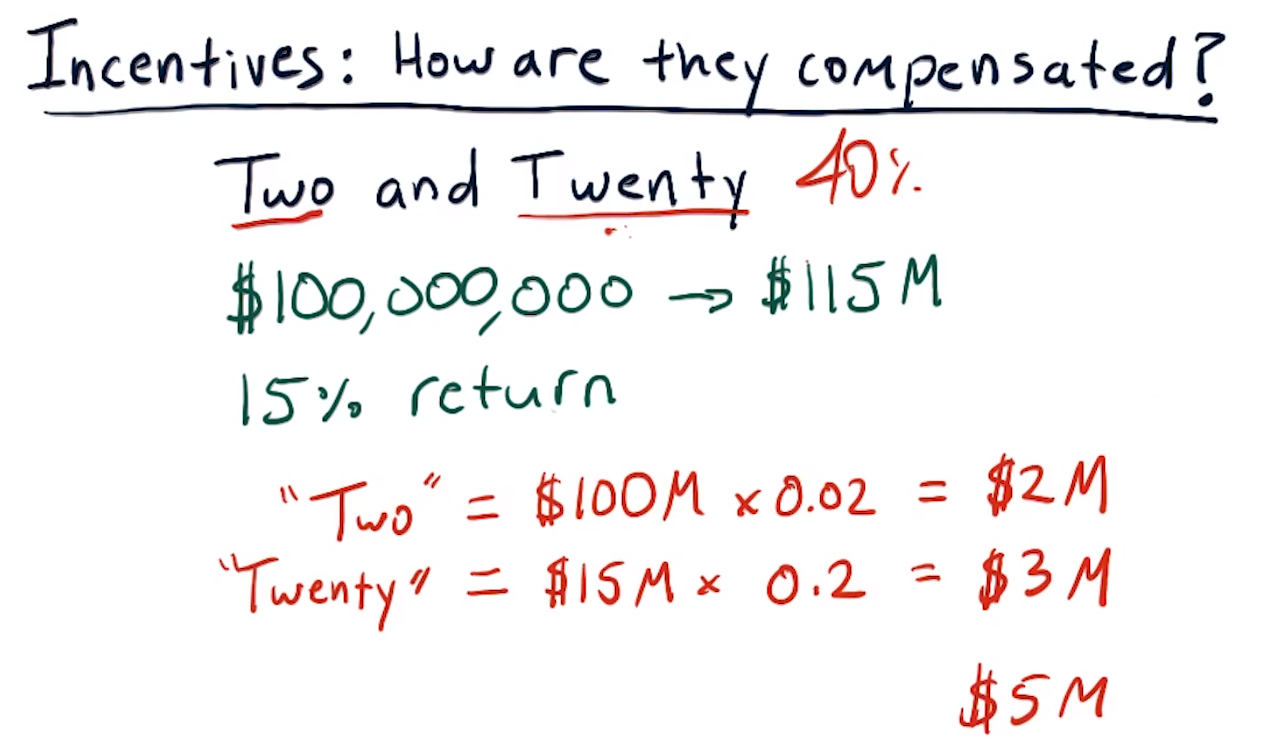 Incentives: How are they compensated?
Two and Twenty 40%
$100,000,000 → $115M
15% return
"Two" = $100M × 0.02 = $2M
"Twenty" = $15M × 0.2 = $3M
$5M